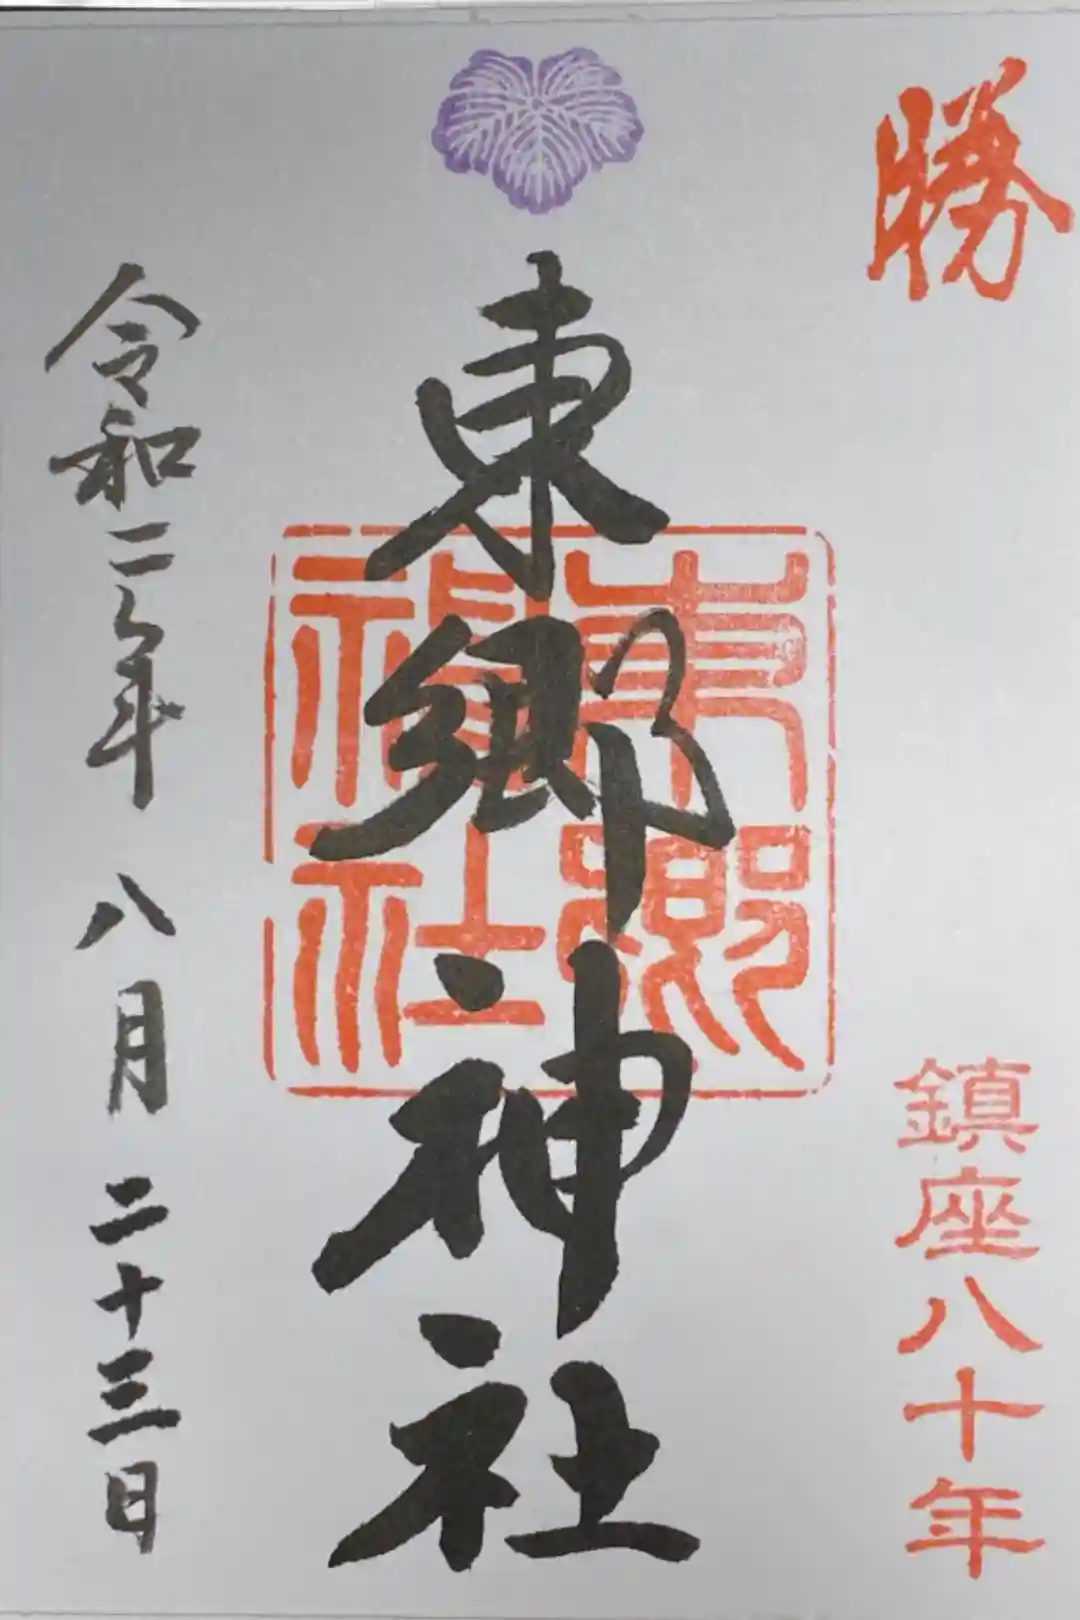 勝
鎮座八十年
東郷神社
東郷神社
令和二年八月二十三日